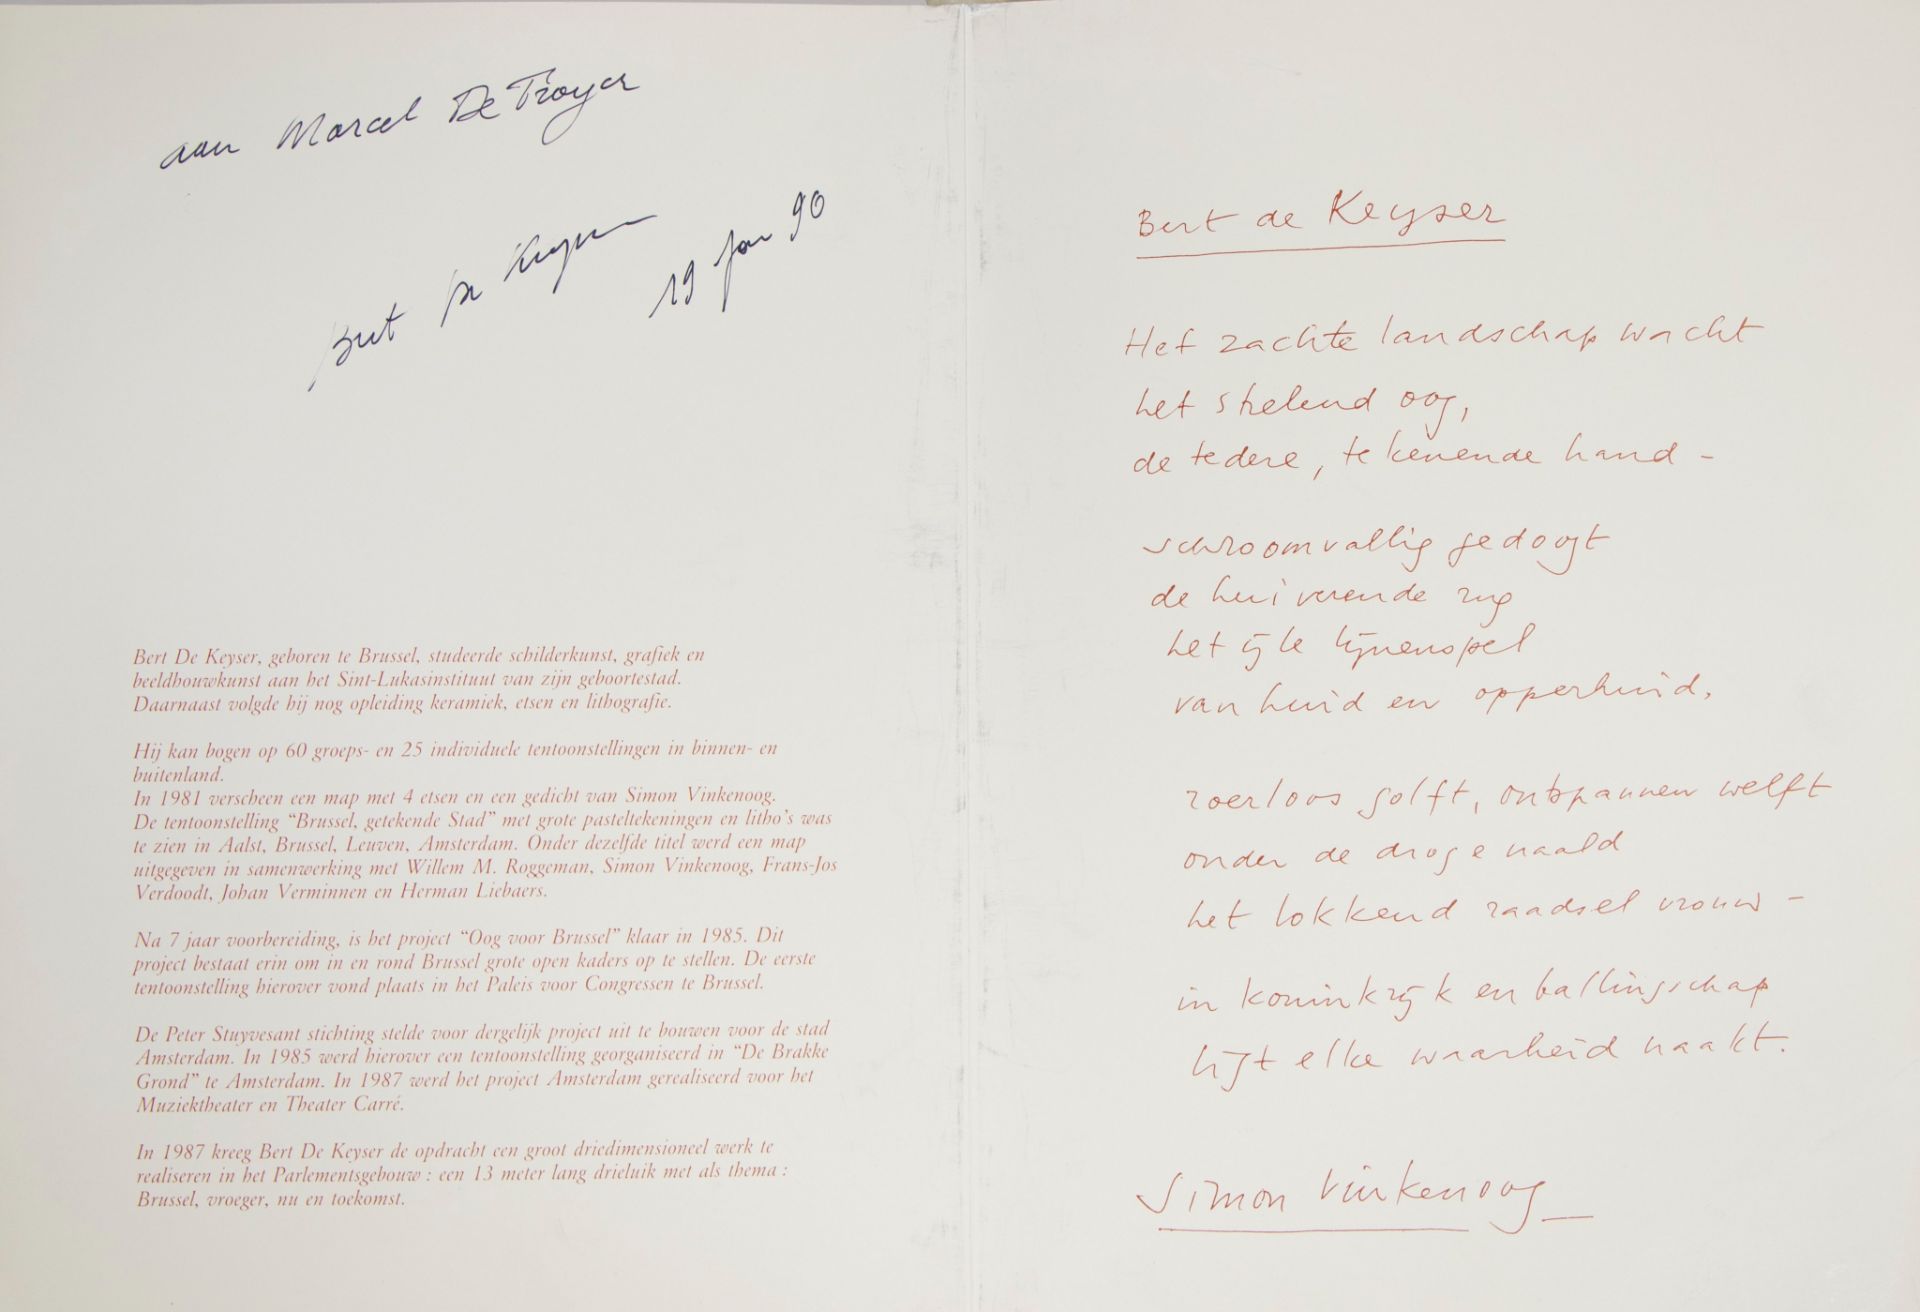 aan Marcel De Troyer
Bert De Keyser
19 Jan 90
Bert De Keyser, geboren te Brussel, studeerde schilderkunst, grafiek en
beeldhouwkunst aan het Sint-Lukasinstituut van zijn geboortestad.
Daarnaast volgde hij nog opleiding keramiek, etsen en lithografie.
Hij kan bogen op 60 groeps- en 25 individuele tentoonstellingen in binnen- en
buitenland.
In 1981 verscheen een map met 4 etsen en een gedicht van Simon Vinkenoog.
De tentoonstelling “Brussel, getekende Stad” met grote pasteltekeningen en litho’s was
te zien in Aalst, Brussel, Leuven, Amsterdam. Onder dezelfde titel werd een map
uitgegeven in samenwerking met Willem M. Roggeman, Simon Vinkenoog, Frans-Jos
Verdoodt, Johan Verminnen en Herman Liebaers.
Na 7 jaar voorbereiding, is het project “Oog voor Brussel” klaar in 1985. Dit
project bestaat erin om in en rond Brussel grote open kaders op te stellen. De eerste
tentoonstelling hierover vond plaats in het Paleis voor Congressen te Brussel.
De Peter Stuyvesant stichting stelde voor dergelijk project uit te bouwen voor de stad
Amsterdam. In 1985 werd hierover een tentoonstelling georganiseerd in “De Brakke
Grond” te Amsterdam. In 1987 werd het project Amsterdam gerealiseerd voor het
Muziektheater en Theater Carré.
In 1987 kreeg Bert De Keyser de opdracht een groot driedimensioneel werk te
realiseren in het Parlementsgebouw : een 13 meter lang drieluik met als thema :
Brussel, vroeger, nu en toekomst.
Bert de Keyser
Het zachte landschap wacht
het strelend oog,
de tedere, tekenende hand –
schroomvallig gedoogt
de huiverende rug
het ijle lijnenspel
van huid en opperhuid.
roerloos golft, ontspannen welft
onder de droge naald
het lokkend raadsel vrouw –
in koninkrijk en ballingschap
lijt elke waarheid naakt.
Simon Vinkenoog